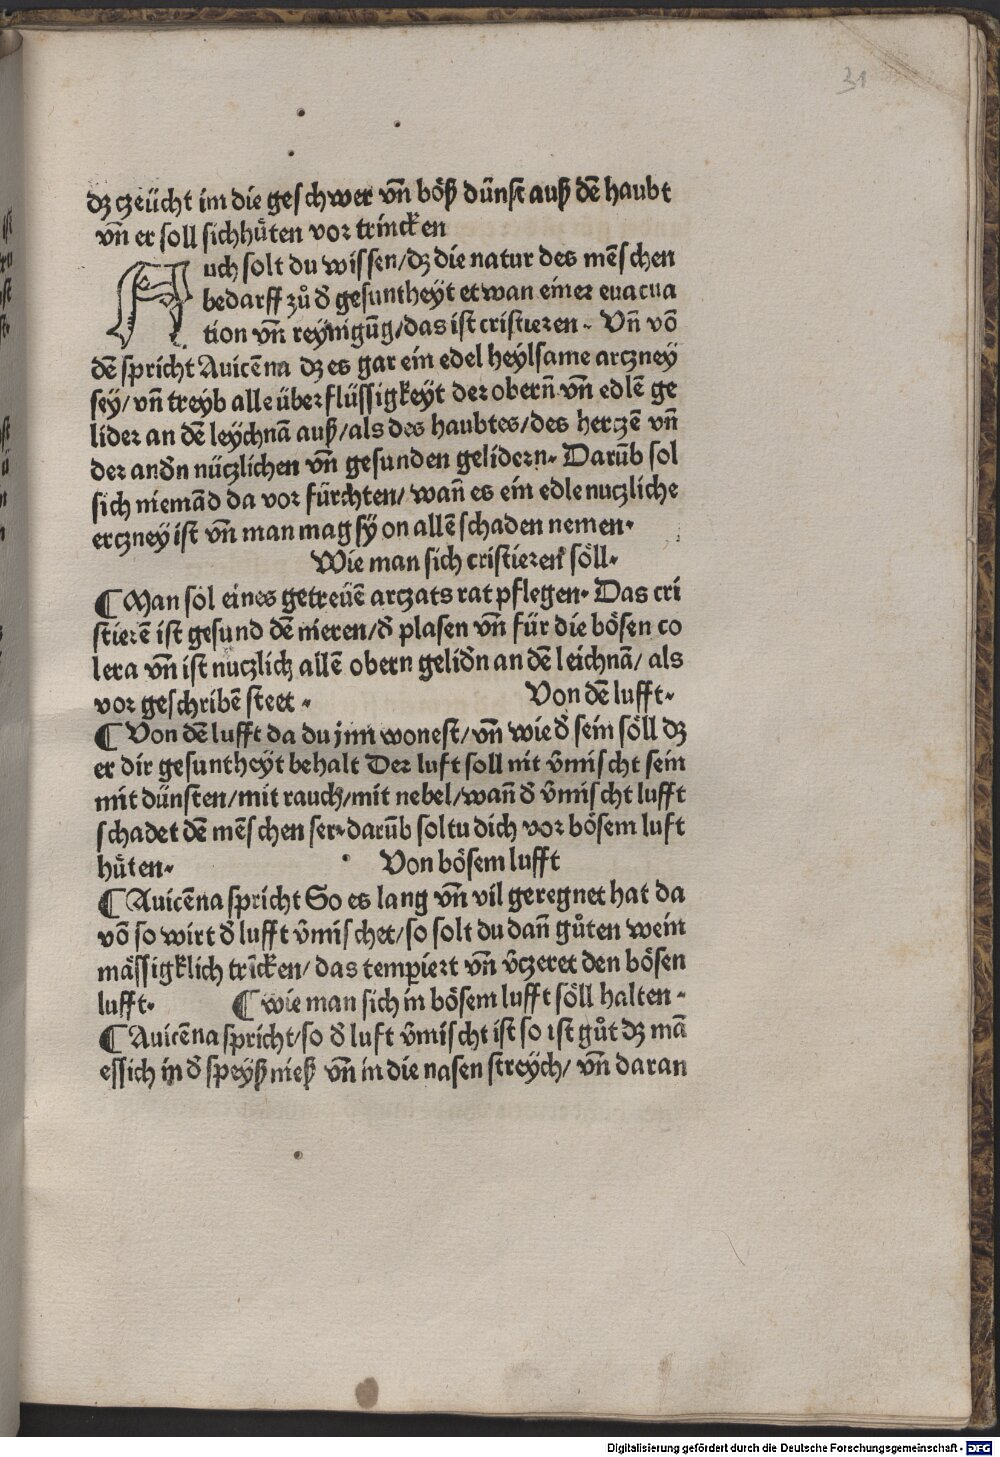 31
dz czeücht im die geschwer vn̄ böß dünst auß dē haubt
vn̄ er soll sich hüten vor trincken
Auch solt du wissen/dz die natur des mēschen
bedarff zů d̄ gesuntheyt etwan einer euacua
tion vn̄ reynigūg/das ist cristieren. Vn̄ vō
dē spricht Auicēna dz es gar ein edel heylsame arczney
sey/vn̄ treyb alle überflüssigkeyt der obern̄ vn̄ edlē ge
lider an dē leychnā auß/als des haubtes/des herczē vn̄
der and̄n nüczlichen vn̄ gesunden gelidern. Darūb sol
sich niemād da vor fürchten/wan̄ es ein edle nuczliche
erczney ist vn̄ man mag sy on allē schaden nemen.
Wie man sich cristieren söll.
¶ Man söl eines getreüē arczats rat pflegen. Das cri
stierē ist gesund dē nieren/d̄ plasen vn̄ für die bösen co
lera vn̄ ist nuczlich allē obern gelid̄n an dē leichnā/als
vor geschribē steet. Von dē lufft.
¶ Von dē lufft da du jnn wonest/vn̄ wie d̄ sein söll dz
er dir gesuntheyt behalt Der luft soll nit v̄mischt sein
mit dünsten/mit rauch/mit nebel/wan̄ d̄ v̄mischt lufft
schadet dē mēschen ser.darūb soltu dich vor bösem luft
hüten. Von bösem lufft
¶ Auicēna spricht So es lang vn̄ vil geregnet hat da
vō so wirt d̄ lufft v̄mischet/so solt du dan̄ gůten wein
mässigklich trīcken/das tempiert vn̄ v̄czeret den bösen
lufft. ¶ wie man sich in bösem lufft söll halten.
¶ Auicēna spricht/so d̄ luft v̄mischt ist so ist gůt dz mā
essich in d̄ speyß nieß vn̄ in die nasen streych/vn̄ daran
Digitalisierung gefördert durch die Deutsche Forschungsgemeinschaft - DFG